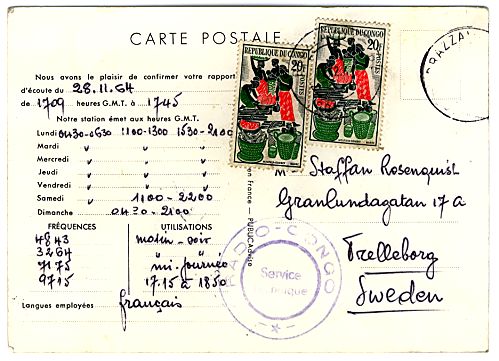 CARTE POSTALE
REPUBLIQUE DU CONGO
20F
POSTES
REPUBLIQUE DU CONGO
20F
POSTES
BRAZZA
Nous avons le plaisir de confirmer votre rapport
d'écoute du 28.11.64
de 1709 heures G.M.T. à 1745
Notre station émet aux heures G.M.T.
Lundi 0430-0630 1100-1300 1530-2100
Mardi " " "
Mercredi " " "
Jeudi " " "
Vendredi " " "
Samedi " 1100-2200
Dimanche 0430-2100
FRÉQUENCES UTILISATIONS
4843 matin-soir
3264 " "
7175 mi-journée
9715 17.15 à 1850
Langues employées français
en France — PUBLICA
RADIO-CONGO
Service
M
Staffan Rosenquist
Granlundagatan 17A
Trelleborg
Sweden